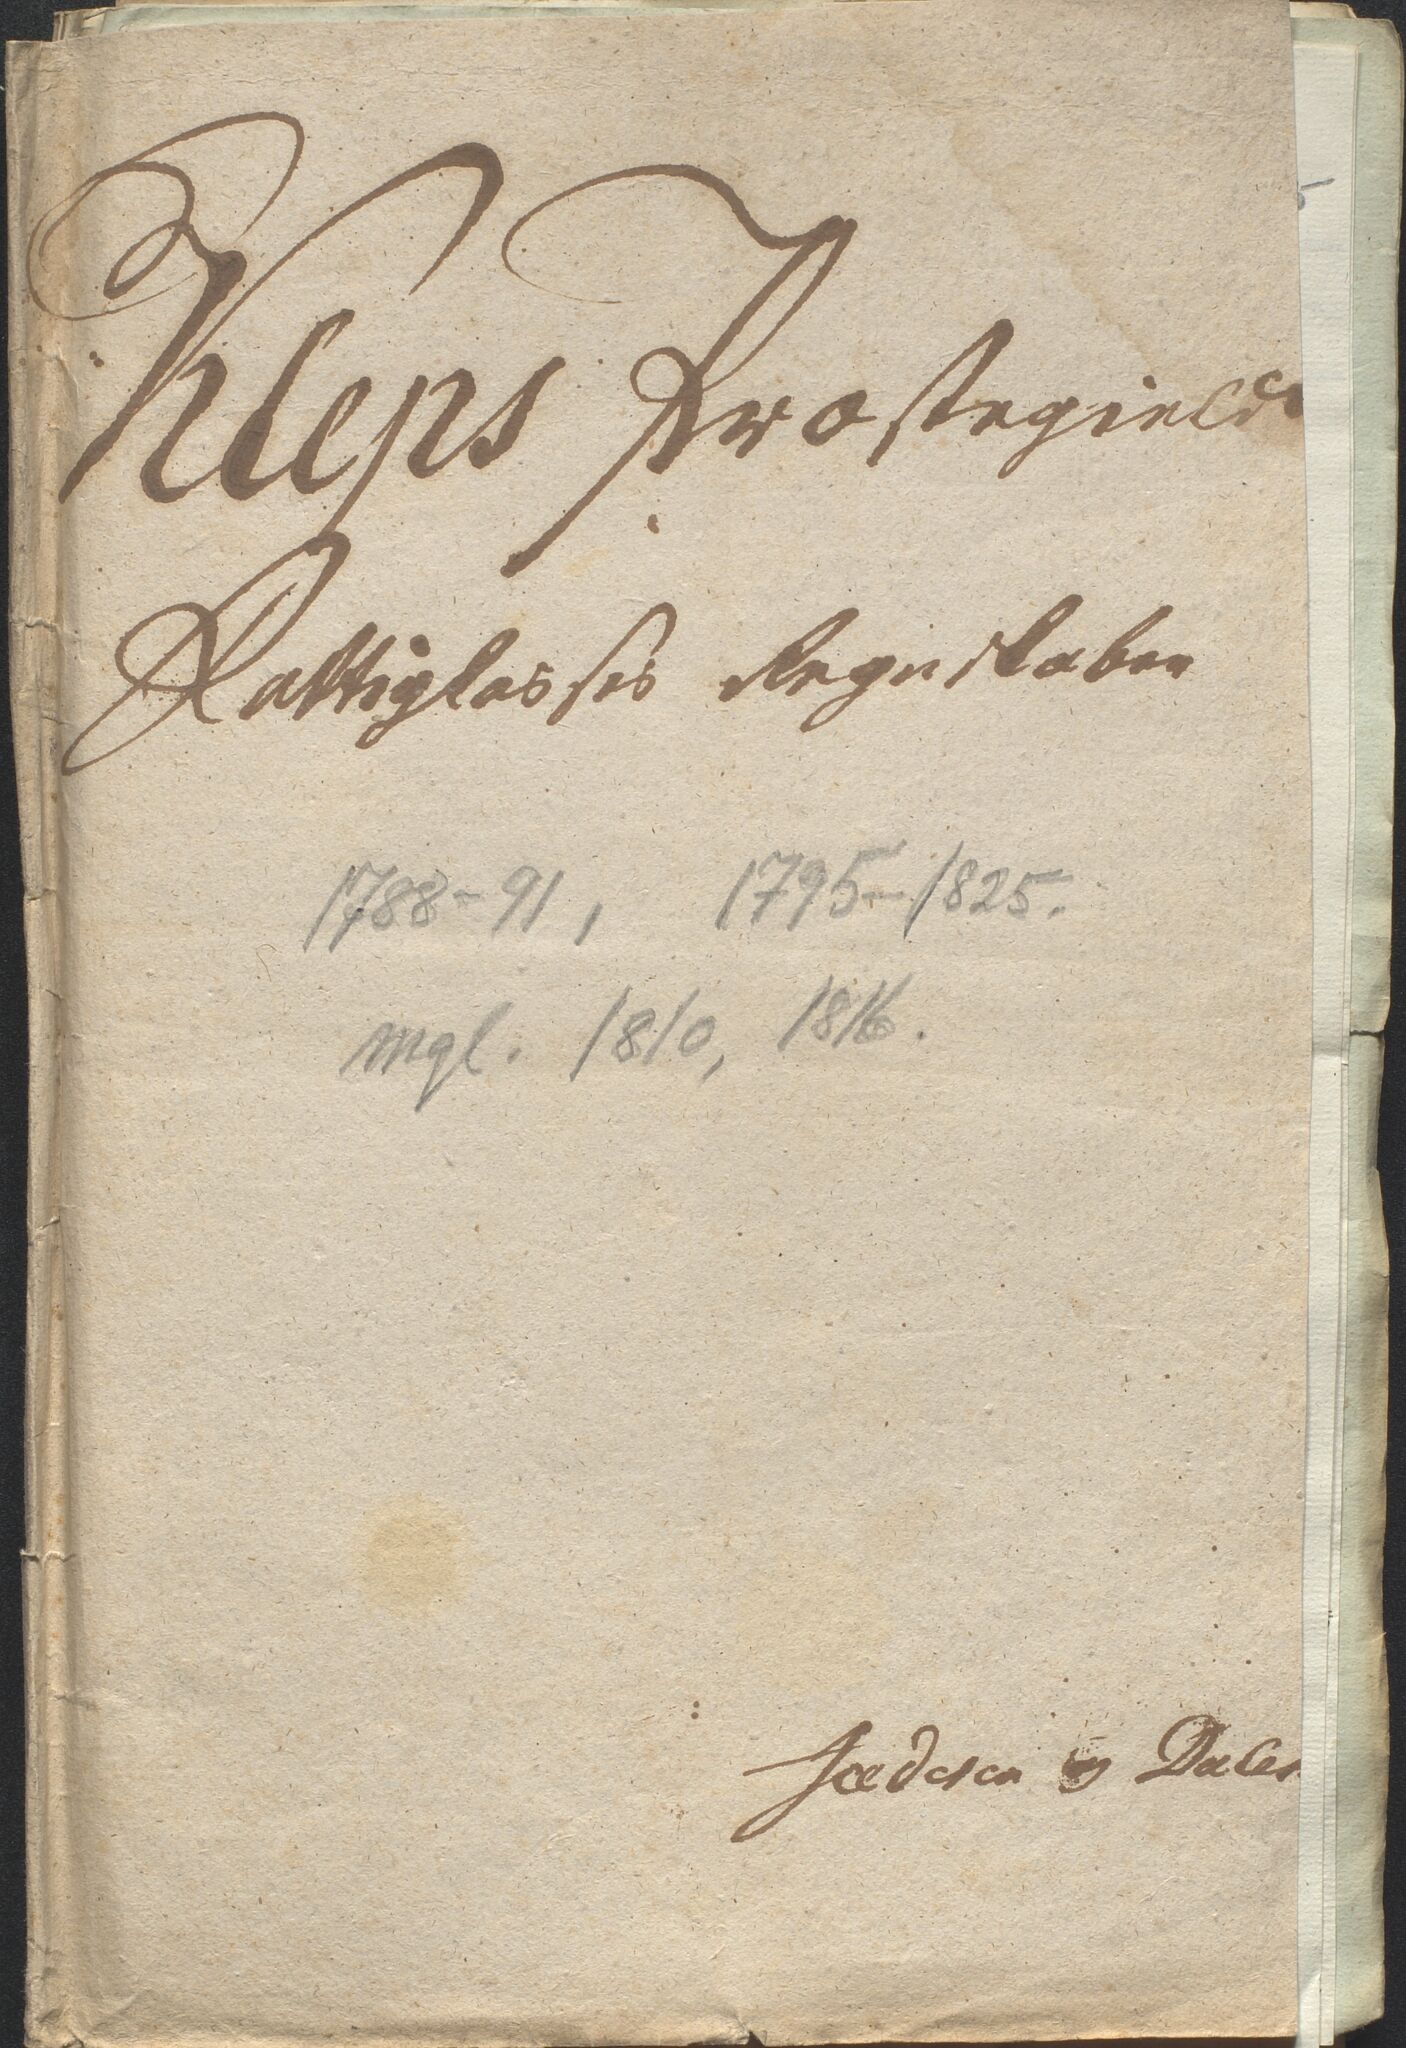 Kleps Præstegields
Fattigkasses Regnskaber
1788-91, 1795-1825.
mgl. 1810, 1816.
Jæderen og Dalerne